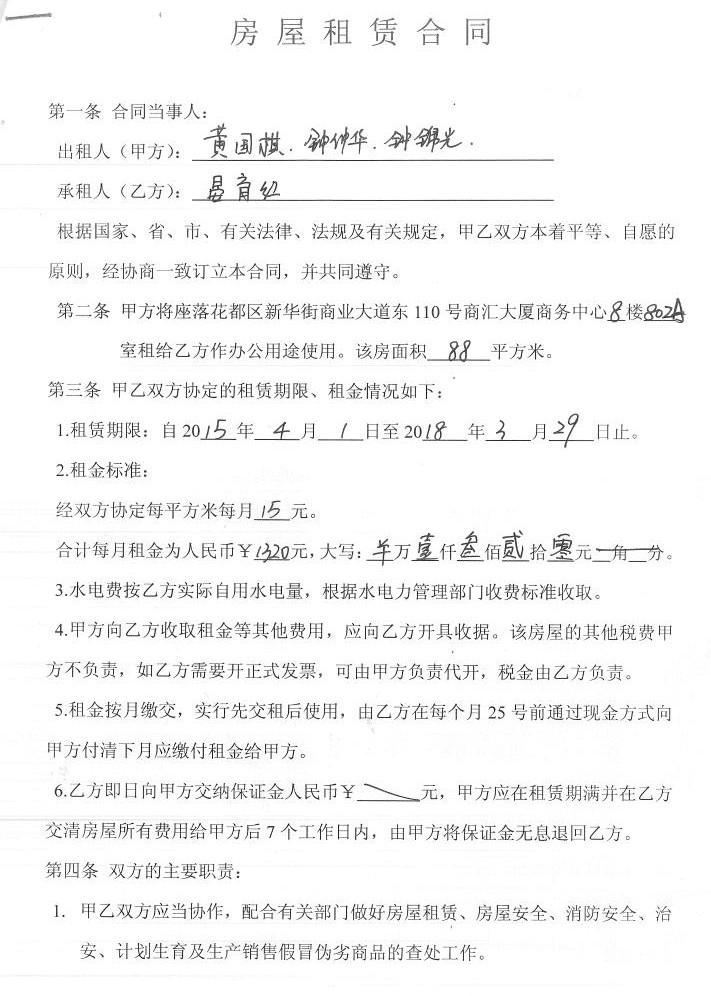 房屋租赁合同
第一条 合同当事人：
出租人（甲方）：黄国棋．钟仲华．钟锦光．
承租人（乙方）：育红
根据国家、省、市、有关法律、法规及有关规定，甲乙双方本着平等、自愿的
原则，经协商一致订立本合同，并共同遵守。
第二条 甲方将座落花都区新华街商业大道东 110 号商汇大厦商务中心8楼802A
室租给乙方作办公用途使用。该房面积 88 平方米。
第三条 甲乙双方协定的租赁期限、租金情况如下：
1.租赁期限：自 2015年 4 月 1 日至 2018 年 3 月 29 日止。
2.租金标准：
经双方协定每平方米每月 15 元。
合计每月租金为人民币￥1320元，大写：万壹仟叁佰贰拾零元一角一分。
3.水电费按乙方实际自用水电量，根据水电力管理部门收费标准收取。
4.甲方向乙方收取租金等其他费用，应向乙方开具收据。该房屋的其他税费甲
方不负责，如乙方需要开正式发票，可由甲方负责代开，税金由乙方负责。
5.租金按月缴交，实行先交租后使用，由乙方在每个月 25 号前通过现金方式向
甲方付清下月应缴付租金给甲方。
6.乙方即日向甲方交纳保证金人民币￥ 元，甲方应在租赁期满并在乙方
交清房屋所有费用给甲方后 7 个工作日内，由甲方将保证金无息退回乙方。
第四条 双方的主要职责：
1. 甲乙双方应当协作，配合有关部门做好房屋租赁、房屋安全、消防安全、治
安、计划生育及生产销售假冒伪劣商品的查处工作。